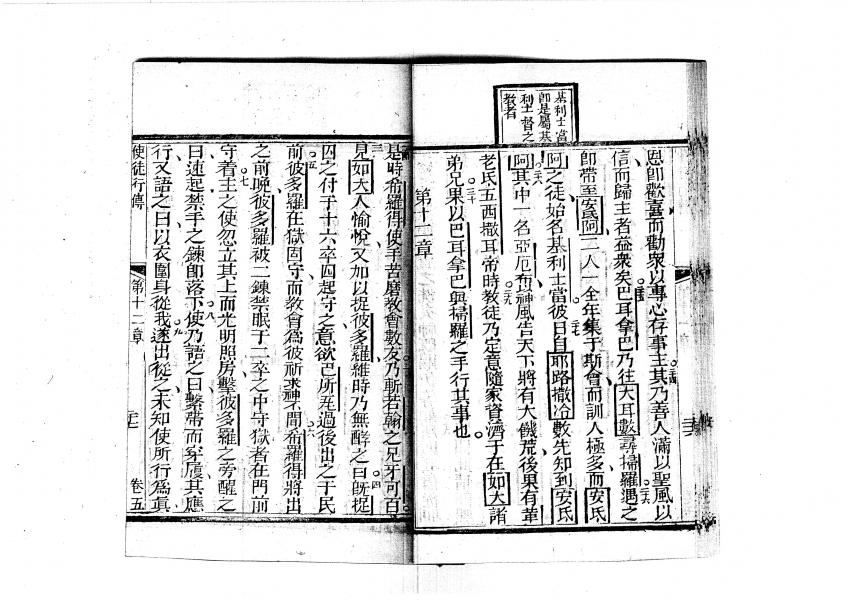 基利士當
即是屬基
利士督之
教者
恩即歡喜而勸衆以專心存事主其乃善人滿以聖風以
信而歸主者益衆矣巴耳拿巴乃往大耳數尋掃羅遇之
即帶至安氐阿二人一全年集于斯會而訓人極多而安氐
阿之徒始名基利士當彼日自耶路撒冷數先知到安氐
阿其中一名亞厄布神風告天下將有大饑荒後果有革
老氐五西撒耳帝時教徒乃定意隨家資濟于在如大諸
弟兄果以巴耳拿巴與掃羅之手行其事也
第十二章
是時希羅得使手苦磨教會數友乃斬若翰之兄牙可百
見如大人愉悅又加以捉彼多羅維時乃無酵之日既捉
囚之付于十六卒囚起守之意欲巴所瓦過後出之于民
前彼多羅在獄固守而教會為彼祈求不間希羅得將出
之前晚彼多羅被二鍊禁眠于二卒之中守獄者在門前
守着主之使忽立其上而光明照房擊彼多羅之旁醒之
曰速起禁手之鍊即落下使乃語之曰繫帶而穿履其應
行又語之曰以衣圍身從我遂出從之未知使所行為真
使徒行傳
第十二章
卷五